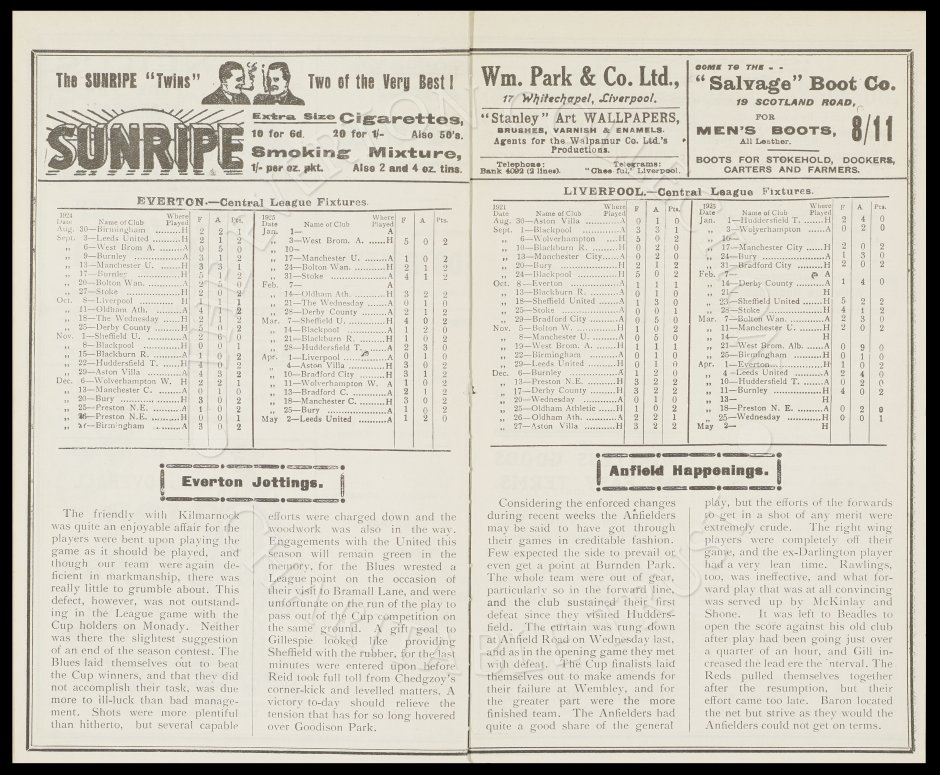 The SUNRIPE "Twins" Two of the Very Best!
SUNRIPE
Extra Size Cigarettes,
10 for 6d. 20 for 1/- Also 50's.
Smoking Mixture,
1/- per oz. pkt. Also 2 and 4 oz. tins.
Wm. Park & Co. Ltd.,
17 Whitechapel, Liverpool.
"Stanley" Art WALLPAPERS,
BRUSHES, VARNISH & ENAMELS.
Agents for the Walpamur Co. Ltd.'s
Productions.
Telephone: Telegrams:
Bank 4092 (2 lines). "Chee ful," Liverpool.
COME TO THE - -
"Salvage" Boot Co.
19 SCOTLAND ROAD,
FOR
MEN'S BOOTS, 8/11
All Leather.
BOOTS FOR STOKEHOLD, DOCKERS,
CARTERS AND FARMERS.
EVERTON.—Central League Fixtures.
1924
Date Name of Club Where Played F A Pts.
Aug. 30—Birmingham H 2 2
Sept. 3—Leeds United H 2 1 2
„ 6—West Brom A. A 0 5 0
„ 9—Burnley A 3 1 2
„ 13—Manchester U. H 3 3 1
„ 17—Burnley H 5 1 2
„ 20—Bolton Wan. A 2 5
„ 27—Stoke H 2 0 2
Oct. 8—Liverpool H 1 1 1
„ 11—Oldham Ath. A 4 1 2
„ 18—The Wednesday H 2 1 2
„ 25—Derby County H 5 0 2
Nov. 1—Sheffield U. A 2 6 0
„ 8—Blackpool H 0 0 1
„ 15—Blackburn R. A 1 0 2
„ 22—Huddersfield T. H 4 0 2
„ 29—Aston Villa A 4 3 2
Dec. 6—Wolverhampton W. H 2 2 1
„ 13—Manchester C. A 0 1 0
„ 20—Bury H 3 0 2
„ 25—Preston N.E. A 1 0 2
„ 26—Preston N.E. H 0 0 1
„ 27—Birmingham A 3 0 2
1925
Date Name of Club Where Played F A Pts.
Jan. 1— A
„ 3—West Brom. A. H 5 0 2
„ 10—
„ 17—Manchester U. A 1 0 2
„ 24—Bolton Wan. H 2 1 2
„ 31—Stoke A 4 1 2
Feb. 7— A
„ 14—Oldham Ath. H 3 2 2
„ 21—The Wednesday A 0 1 0
„ 28—Derby County A 2 1 2
Mar. 7—Sheffield U. H 4 0 2
„ 14—Blackpool A 1 2 0
„ 21—Blackburn R. H 1 0 2
„ 28—Huddersfield T. A 2 3 0
Apr. 1—Liverpool A 0 1 0
„ 4—Aston Villa H 3 0 2
„ 10—Bradford City H 3 1 2
„ 11—Wolverhampton W. A 1 0 2
„ 13—Bradford C. A 2 1 2
„ 18—Manchester C. H 3 0 2
„ 25—Bury A 1 0 2
May 2—Leeds United A 1 2 0
LIVERPOOL.—Central League Fixtures.
Date Name of Club Where Played F A Pts.
Aug. 30—Aston Villa A 0 1 0
Sept. 1—Blackpool A 3 3 1
„ 6—Wolverhampton H 5 0 2
„ 10—Blackburn R. H 0 2 0
„ 13—Manchester City A 0 2 0
„ 20—Bury H 2 1 2
„ 24—Blackpool H 5 0 2
Oct. 8—Everton A 1 1 1
„ 13—Blackburn R. A 0 1 0
„ 18—Sheffield United A 1 3 0
„ 25—Stoke A 0 0 1
„ 29—Bradford City A 0 5 0
Nov. 5—Bolton W. H 1 0 2
„ 8—Manchester U. A 0 5 0
„ 15—West Brom. A. H 1 1 1
„ 22—Birmingham A 0 1 0
„ 29—Leeds United H 0 1 0
Dec. 6—Burnley A 1 2 0
„ 13—Preston N.E. H 3 2 2
„ 17—Derby County H 3 2 2
„ 20—Wednesday A 0 1 0
„ 25—Oldham Athletic H 1 0 2
„ 26—Oldham Ath. A 2 2
„ 27—Aston Villa H 3 2 2
1925
Date Name of Club Where Played F A Pts.
Jan. 1—Huddersfield T. H 2 4 0
„ 3—Wolverhampton A 0 2 0
„ 10—
„ 17—Manchester City H 2 0 2
„ 24—Bury A 1 3 0
„ 31—Bradford City H 2 0 2
Feb. 7— A
„ 14—Derby County A 1 4 0
„ 21— H
„ 23—Sheffield United H 5 2 2
„ 28—Stoke H 4 1 2
Mar. 7—Bolton Wan. A 2 3 0
„ 11—Manchester U. H 2 0 2
„ 14— H
„ 21—West Brom. Alb. A 0 9 0
„ 25—Birmingham H 0 1 0
Apr. 1—Everton H 1 0 2
„ 4—Leeds United A 2 4 0
„ 10—Huddersfield T. A 0 2 0
„ 11—Burnley H 4 0 2
„ 13— H
„ 18—Preston N. E. A 0 2 0
„ 25—Wednesday H 0 0 1
May 2— H
Everton Jottings.
The friendly with Kilmarnock
was quite an enjoyable affair for the
players were bent upon playing the
game as it should be played, and
though our team were again de-
ficient in markmanship, there was
really little to grumble about. This
defect, however, was not outstand-
ing in the League game with the
Cup holders on Monady. Neither
was there the slightest suggestion
of an end of the season contest. The
Blues laid themselves out to beat
the Cup winners, and that they did
not accomplish their task, was due
more to ill-luck than bad manage-
ment. Shots were more plentiful
than hitherto, but several capable
efforts were charged down and the
woodwork was also in the way.
Engagements with the United this
season will remain green in the
memory, for the Blues wrested a
League point on the occasion of
their visit to Bramall Lane, and were
unfortunate on the run of the play to
pass out of the Cup competition on
the same ground. A gift goal to
Gillespie looked like providing
Sheffield with the rubber, for the last
minutes were entered upon before
Reid took full toll from Chedgzoy's
corner-kick and levelled matters. A
victory to-day should relieve the
tension that has for so long hovered
over Goodison Park.
Anfield Happenings.
Considering the enforced changes
during recent weeks the Anfielders
may be said to have got through
their games in creditable fashion.
Few expected the side to prevail or
even get a point at Burnden Park.
The whole team were out of gear,
particularly so in the forward line,
and the club sustained their first
defeat since they visited Hudders-
field. The curtain was rung down
at Anfield Road on Wednesday last,
and as in the opening game they met
with defeat. The Cup finalists laid
themselves out to make amends for
their failure at Wembley, and for
the greater part were the more
finished team. The Anfielders had
quite a good share of the general
play, but the efforts of the forwards
to get in a shot of any merit were
extremely crude. The right wing
players were completely off their
game, and the ex-Darlington player
had a very lean time. Rawlings,
too, was ineffective, and what for-
ward play that was at all convincing
was served up by McKinlay and
Shone. It was left to Beadles to
open the score against his old club
after play had been going just over
a quarter of an hour, and Gill in-
creased the lead ere the interval. The
Reds pulled themselves together
after the resumption, but their
effort came too late. Baron located
the net but strive as they would the
Anfielders could not get on terms.